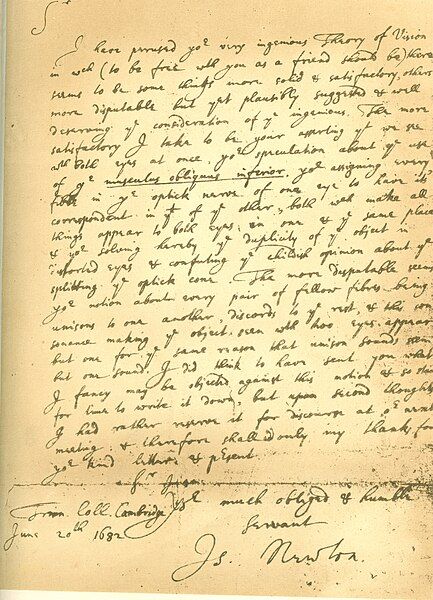 Sr
I have perused yor very ingenious Theory of Vision
in wch (to be free wth you as a friend should be) there
seems to be some things more solid & satisfactory, others
more disputable but yet plausibly suggested & well
deserving ye consideration of ye ingenious. The more
satisfactory I take to be your asserting yt we see
wth both eyes at once, yor speculation about ye use
of ye musculus obliquus inferior, yor assigning every
fibre in ye optick nerve of one eye to have its
correspondent in yt of ye other, both wch make all
things appear to both eyes in one & ye same place
& yor solving hereby ye duplicity of ye object in
distorted eyes & confuting ye childish opinion about ye
splitting ye optick cone. The more disputable seems
yor notion about every pair of fellow fibres being
unisons to one another, discords to ye rest, & this con-
sonance making ye object seen wth two eyes appear
but one for ye same reason that unison sounds seem
but one sound. I did think to have sent you what
I fancy may be objected against this notion & so
for time to write it down, but upon second thoughts
I had rather reserve it for discourse at or next
meeting: & therefore shall add only my thanks for
yor kind letter & present.
Sr I am
Yor much obliged & humble
Servant
Is. Newton.
Trin. Coll. Cambridge
June 20th 1682